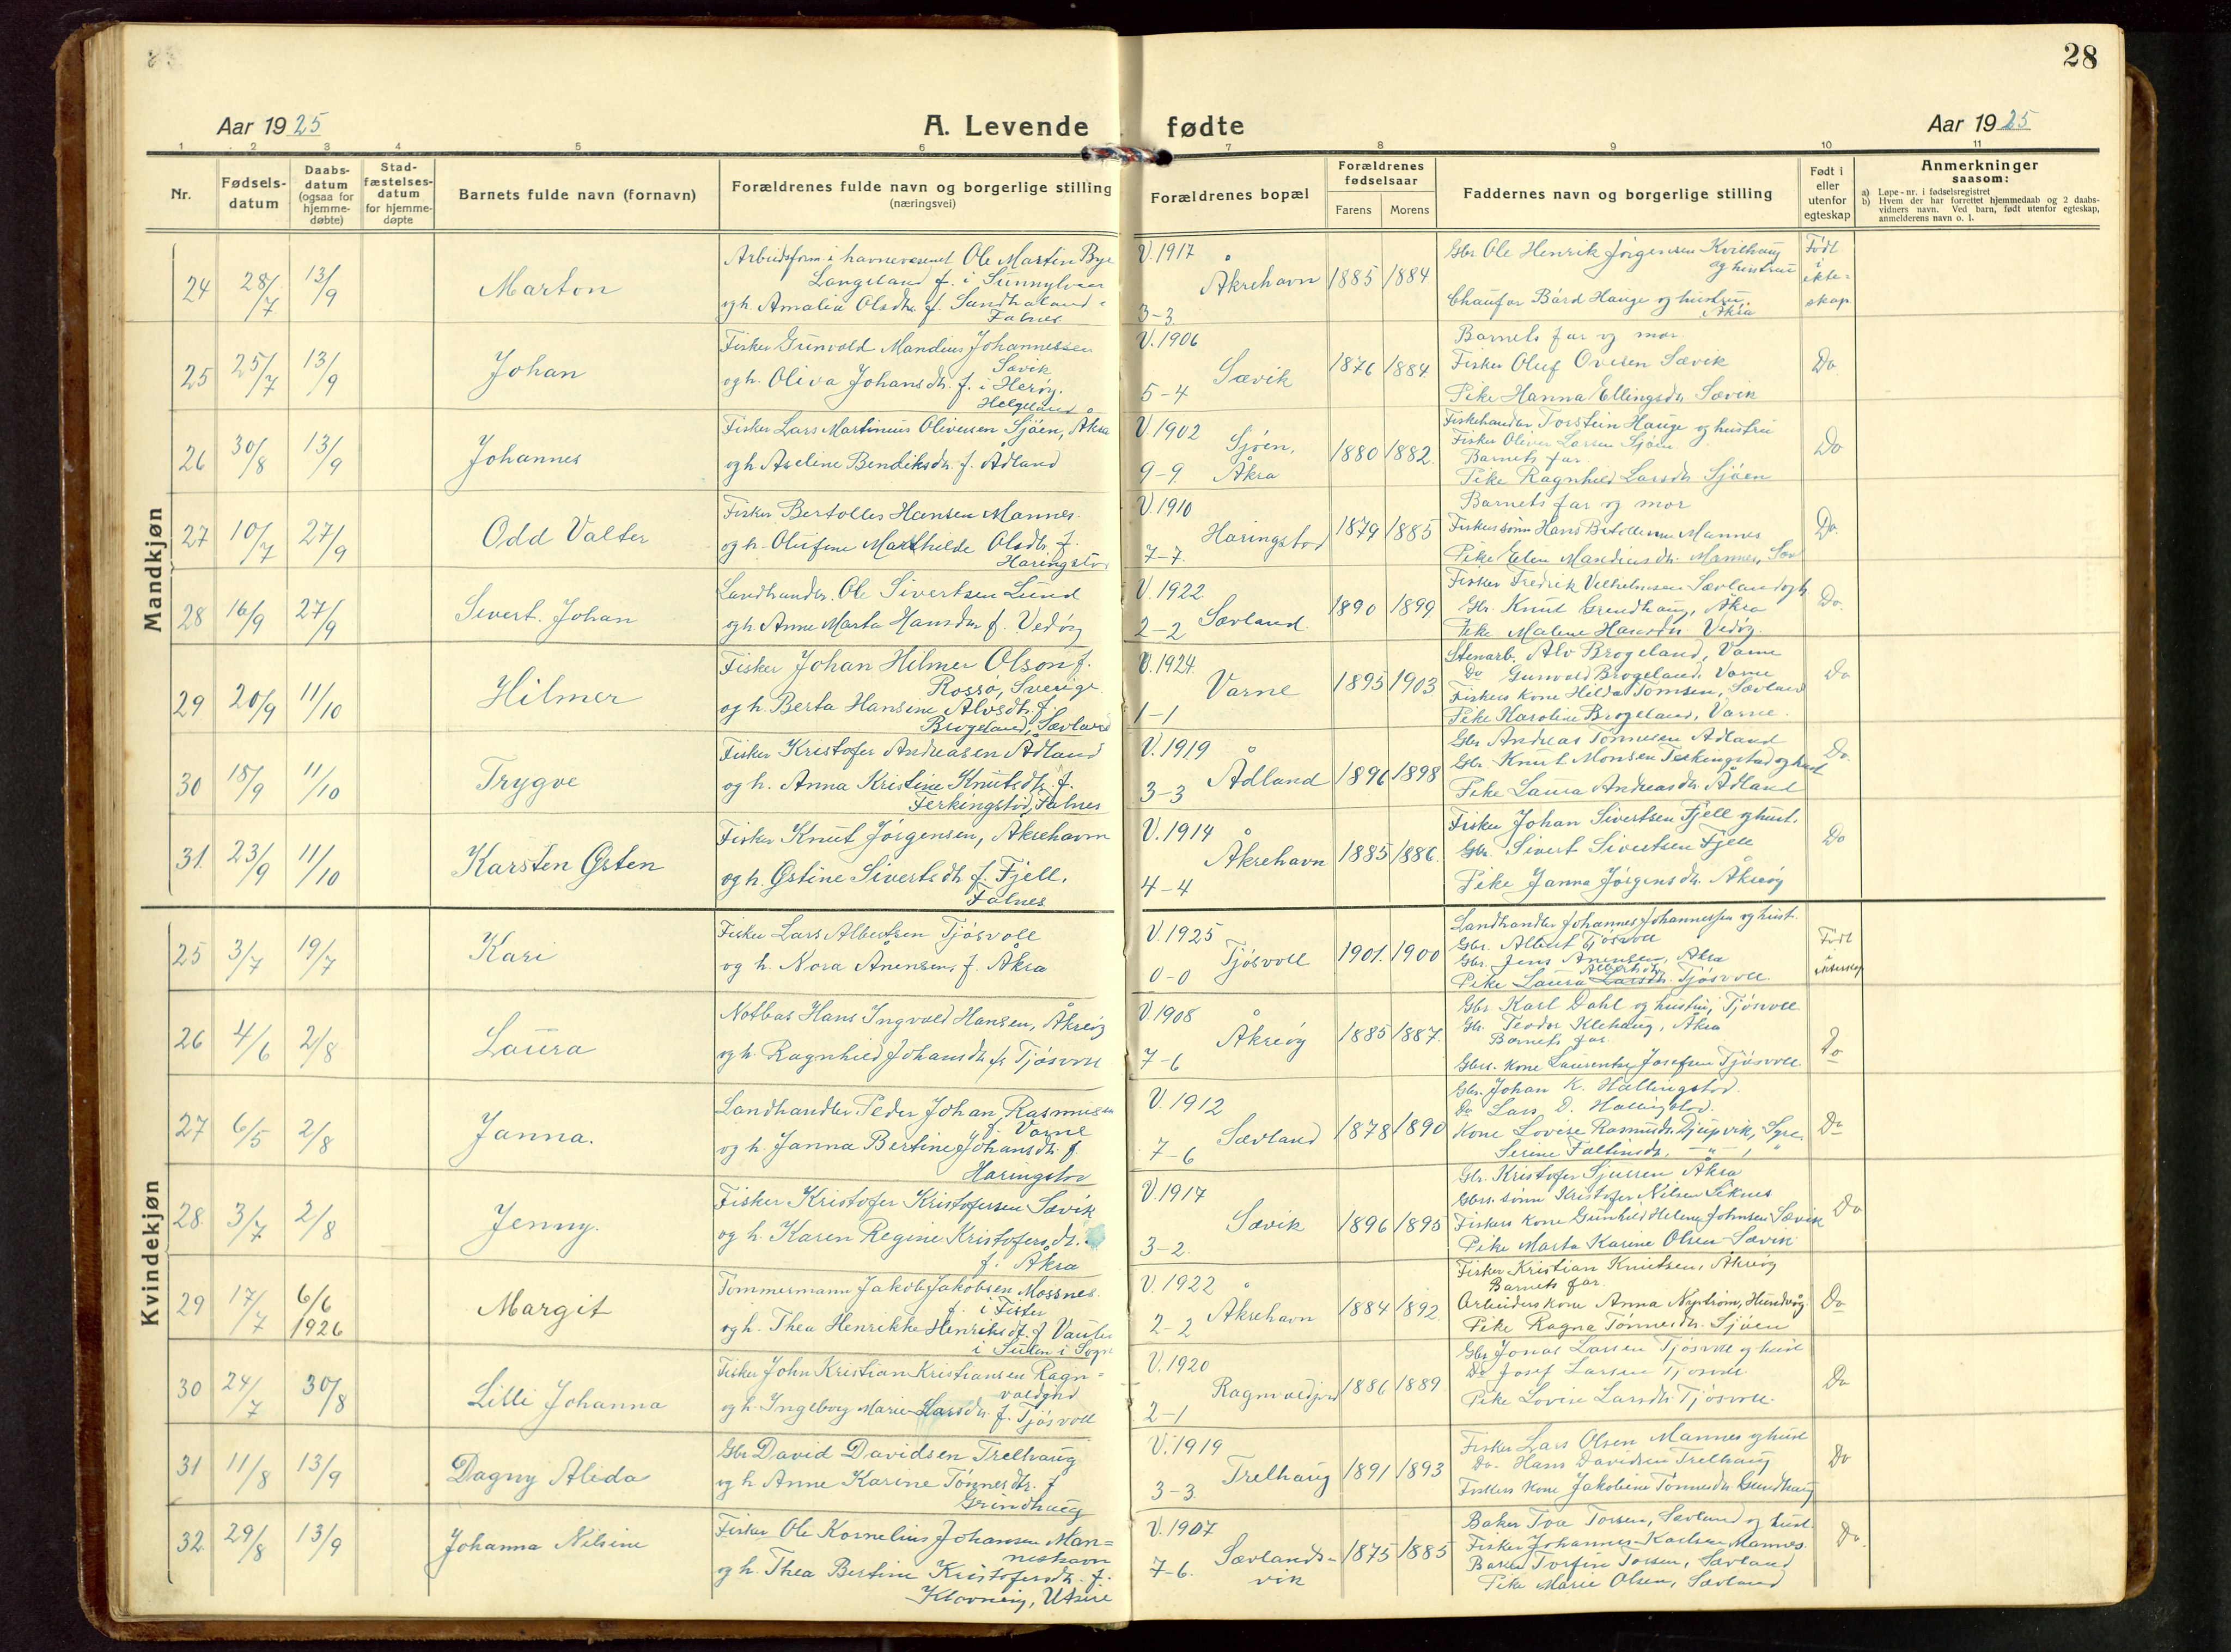 28
Aar 1925
A. Levende fødte
Aar 1925
1 2 3 4 5 6 7 8 9 10 11
Nr.
Fødsels-
datum
Daabs-
datum
(ogsaa for
hjemme-
døbte)
Stad-
fæstelses-
datum
for hjemme-
døpte
Barnets fulde navn (fornavn)
Forældrenes fulde navn og borgerlige stilling
(næringsvei)
Forældrenes bopæl
Forældrenes
fødselsaar
Farens Morens
Faddernes navn og borgerlige stilling
Født i
eller
utenfor
egteskap
Anmerkninger
saasom:
a) Løpe-nr. i fødselsregistret
b) Hvem der har forrettet hjemmedaab og 2 daabs-
vidners navn. Ved barn, født utenfor egteskap,
anmelderens navn o. l.
Mandkjøn
24 28/7 13/9 Marton
Arbeidsform. i havnevæsenet Ole Martin Bye
Langeland f. i Sunnylven
og h. Amalia Olsdtr. f. Sandhaland
Falnes
V. 1917
Åkrehavn
3-3
1885 1884
Gbr. Ole Henrik Jørgensen Kvilhaug
og hustru
Chaufør Bård Hauge og hustru.
Åkra
Født
i
ekte-
skap
25 25/7 13/9 Johan
Fisker Gunvald Mandius Johannessen
Sævik
og h. Oliva Johansdtr. f. i Herøy.
Helgeland
V. 1906
Sævik
5-4
1876 1884
Barnets far og mor
Fisker Oluf Ovesen Sævik
Pike Hanna Ellingsdtr. Sævik
Do
26 30/8 13/9 Johannes
Fisker Lars Martinius Oliversen Sjøen, Åkra
og h. Aseline Bendiksdtr. f. Ådland
V. 1902
Sjøen,
9-9 Åkra
1880 1882.
Fiskehandler Torstein Hauge og hustru
Fisker Oliver Larsen Sjøen
Barnets far.
Pike Ragnhild Larsdtr. Sjøen
Do
27 10/7 27/9 Odd Valter
Fisker Bertolles Hansen Mannes.
og h. Olufine Marthilde Olsdtr. f.
Haringstod
V. 1910
Haringstod
7-7.
1879 1885
Barnets far og mor
Fiskersønn Hans Mannes
Pike Elen Mandiusdtr. Mannes,
Do.
28 16/9 27/9 Sivert. Johan
Landhandler. Ole Sivertsen Lund
og h. Anne Marta Hansdtr. f. Vedøy
V. 1922
2-2 Sævland.
1890 1899
Fisker Fredrik Vilhelmsen Sævland og h.
Gbr. Knut Grindhaug, Åkra
Pike Malene Hansdtr. Vedøy.
Do.
29 20/9 11/10 Hilmer
Fisker Johan Hilmer Olson f.
Rossö, Sverige.
og h. Berta Hansine Alvsdtr. f.
Brogeland, Sævland
V. 1924
Varne
1-1
1895 1903
Stenarb. Alv Brogeland, Varne
Do Gunvald Brogeland, Varne
Fiskers kone Hilda Tomsen, Sævland
Pike Karoline Brogeland, Varne.
Do
30 18/9 11/10 Trygve
Fisker Kristofer Andreasen Ådland
og h. Anna Kristine Knutsdtr. f.
Ferkingstod, Falnes
V. 1919
Ådland
3-3
1896 1898
Gbr. Andreas Tønnesen Ådland
Gbr. Knut Monsen Ferkingstad og hust
Pike Laura Andreasdtr. Ådland
Do.
31. 23/9 11/10 Karsten Østen
Fisker Knut Jørgensen, Åkrehavn
og h. Østine Sivertsdtr. f. Fjell,
Falnes
V. 1914
Åkrehavn
4-4
1885 1886.
Fisker Johan Sivertsen Fjell og hust.
Gbr. Sivert Sivertsen Fjell
Pike Janna Jørgensdtr. Åkreøy
Do
Kvindekjøn
25 3/7 19/7 Kari
Fisker Lars Albertsen Tjøsvoll
og h. Nora Anensen, f. Åkra
V. 1925
Tjøsvoll
0-0
1901. 1900
Landhandler Johannes Johannessen og hust.
Gbr. Albert Tjøsvoll
Gbr. Jens Anensen, Åkra
Albertsdtr.
Pike Laura Larsdtr. Tjøsvoll.
Født
i
ekteskap
26 4/6 2/8 Laura
Notbas Hans Ingvald Hansen, Åkreøy
og h. Ragnhild Johansdtr. f. Tjøsvoll
V. 1908
Åkreøy
7-6
1885 1887.
Gbr. Karl Dahl og hustru, Tjøsvoll
Gbr. Teodor Klehaug, Åkra
Barnets far.
Gbrs. kone Laurentse Josefsen Tjøsvoll.
Do
27 6/5 2/8 Janna.
Landhandler Peder Johan Rasmussen
f. Varne
og h. Janna Bertine Johansdtr. f.
Haringstod
V. 1912
Sævland
7-6
1878 1890
Gbr. Johan K. Hallingstod.
Do Lars D. Hallingstod.
Kone Lovise Rasmusdtr. Djupvik, Syre
Serine Faltinsdtr, -"- , "
Do
28. 3/7 2/8 Jenny.
Fisker Kristofer Kristofersen Sævik
og h. Karen Regine Kristofersdtr.
f. Åkra
V. 1917
Sævik
3-2.
1896 1895
Gbr. Kristofer Sjursen Åkra
Gbrs. sønn Kristofer Nilsen Liknes
Fiskers kone Gunhild Helene Johnsen Sævik
Pike Marta Karine Olsen Sævik
Do
29 17/7 6/6 1926 Margit
Tømmermann Jakob Jakobsen Mossnes.
f. i Fister
og h. Thea Henrikke Henriksdtr. f.
i Sulen i Sogn
V. 1922
2-2 Åkrehavn
1884 1892.
Fisker Kristian Knutsen, Åkreøy
Barnets far.
Arbeiders kone Anna Nystrøm, Hundvåg.
Pike Ragna Tønnesdtr. Sjøen
Do
30 24/7 30/8 Lilli Johanna
Fisker John Kristian Kristiansen Ragn-
valdjord
og h. Ingeborg Marie Larsdtr. f. Tjøsvoll
V. 1920
Ragnvaldjord
2-1
1886 1889
Gbr. Jonas Larsen Tjøsvoll og hust
Do Josef Larsen Tjøsvoll
Pike Lovise Larsdtr. Tjøsvoll.
Do
31 11/8 13/9 Dagny Alida
Gbr David Davidsen Trelhaug
og h. Anne Karine Tønnesdtr. f
Grindhaug
V. 1919
Trelhaug
3-3.
1891 1893
Fisker Lars Olsen Mannes og hust
Do. Hans Davidsen Trelhaug
Fiskers kone Jakobine Tønnesdtr. Grindhaug
Do
32. 29/8 13/9 Johanna Nilsine
Fisker Ole Kornelius Johansen Man=
neshavn
og h. Thea Bertine Kristofersdtr. f.
Klovning, Utsire
V. 1907
Sævlands-
7-6. vik
1875 1885
Baker Tore Torsen, Sævland og hust.
Fisker Johannes Karlsen Mannes.
Baker Torfin Torsen, Sævland
Pike Marie Olsen, Sævland
Do.